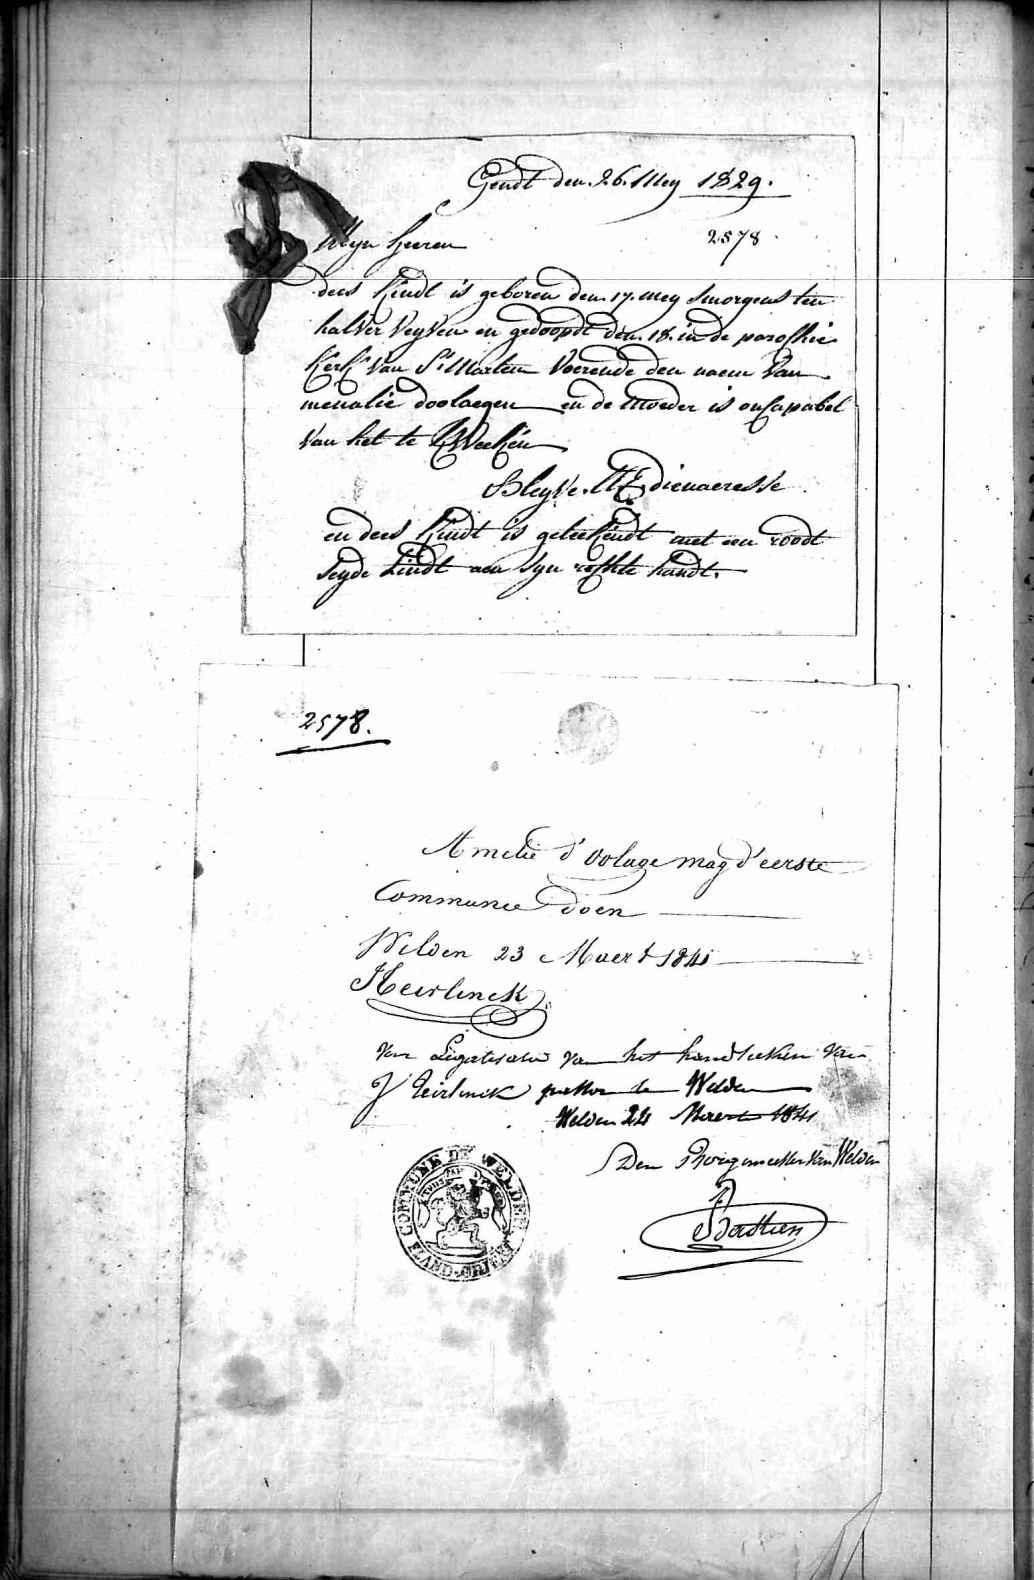 Gendt den. 26. Mey 1829.
Myn heeren 2578
dees kindt is geboren den. 17. mey smorgens ten
halver vyven en gedoopdt den. 18. in de parochie
kerk van St Marten Voerende den naem van
melalie doolaegen en de moeder is oncapabel
van het te kweeken
Blyve. UE dienaeresse
en dees kindt is geteekendt met een roodt
seyde lindt aen syn rechte handt.
2578.
Amelie d'oolage mag d'eerste
Communie doen
Welden 23 Maert 1841
J Teirlinck
Voor Legalisatie van het handteeken van
J Teirlinck pastor te Welden
Welden 24 Maert 1841
Den Borgemeester van Welden
COMMUNE DE WELDEN
FLAND-ORIENT